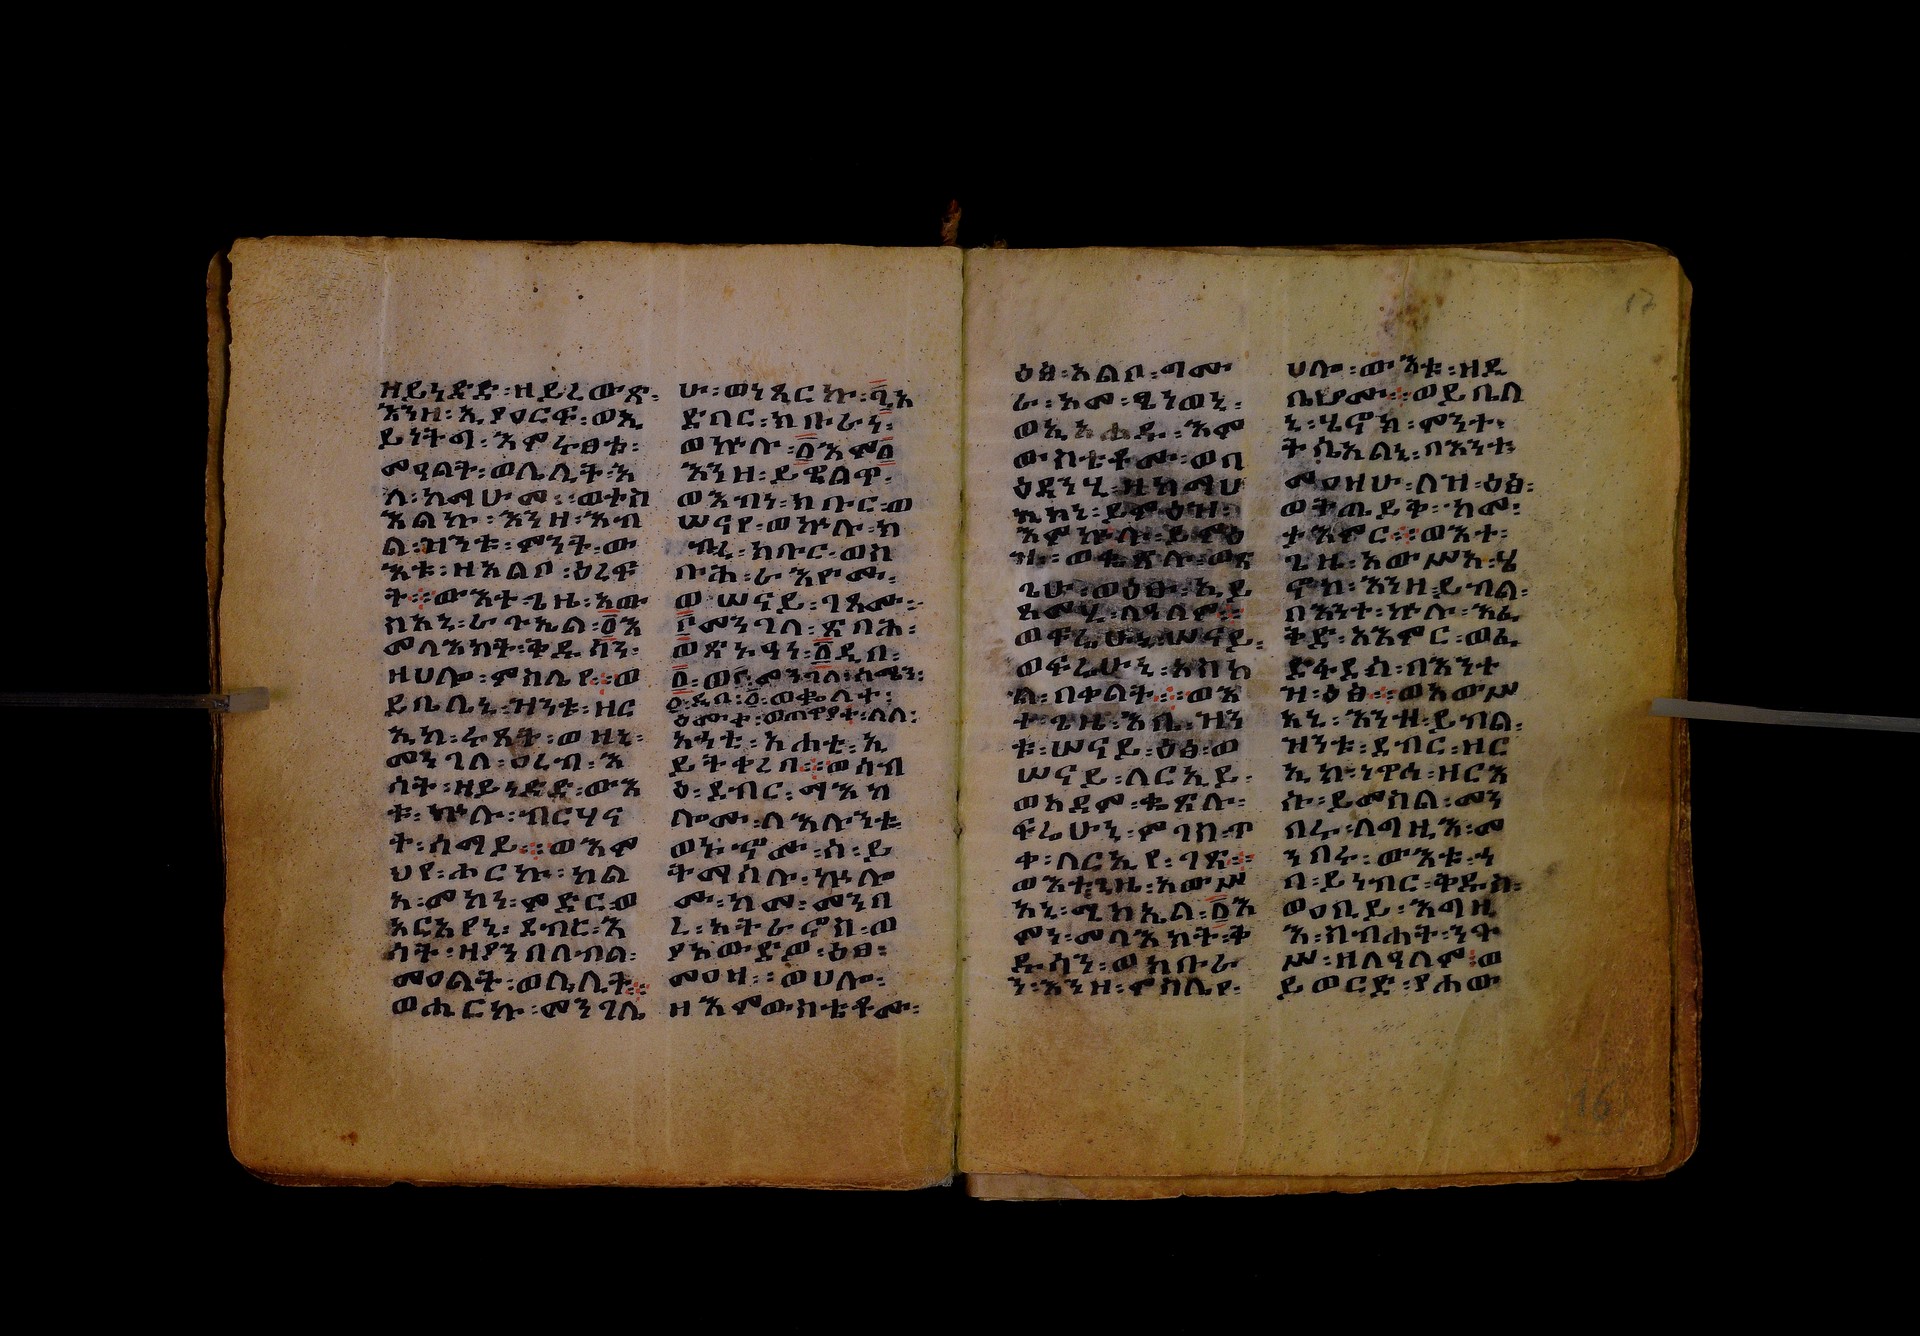 ዘይነድድ፡ዘይረውጽ፡
እንዘ፡ኢያዐርፍ፡ወኢ
ይነትግ፡እምሩፀቱ፡
መዓልተ፡ወሌሊተ፡አ
ላ፡ከማሁ፡መ፡፡ወተስ
እልኩ፡እንዘ፡እብ
ል፡ዝንቱ፡ምንት፡ው
እቱ፡ዘአልቦ፡ዕረፍ
ት፡፡ውእተ፡ጊዜ፡አው
ሥአኒ፡ራጉኤል፡፩እ
መላእክት፡ቅዱሳን፡
ዘሀሎ፡ምስሌየ፡፡ወ
ይቤለኒ፡ዝንቱ፡ዘር
ኢከ፡ሩጸተ፡ወዘኒ፡
መንገለ፡ዐረብ፡እ
ሳት፡ዘይነድድ፡ውእ
ቱ፡ኵሉ፡ብርሃና
ት፡ሰማይ፡፡ወእም
ህየ፡ሖርኩ፡ካል
አ፡መካነ፡ምድር፡ወ
አርአየኒ፡ደብረ፡እ
ሳት፡ዘያንበለብል፡
መዐልተ፡ወሌሊተ፡፡
ወሖርኩ፡መንገሌ
ሁ፡ወነጸርኩ፡፯አ
ድባር፡ክቡራነ፡
ወኵሉ፡፩እም፩
እንዘ፡ይዌልጥ፡
ወእብነ፡ክቡር፡ወ
ሠናየ፡ወኵሉ፡ክ
ክቡር፡ወስ
ቡሕ፡ራእዮሙ፡
ወሠናይ፡ገጾሙ፡፡
፫መንገለ፡ጽባሕ፡
ወጽኑዓን፡፩ዲበ፡
፩፡ወ፫፡መንገለ፡ሰሜን፡
፩፡ዲበ፡፩፡ወቈላተ፡
ዕሙቀ፡ወጠዋያተ፡ለለ፡
አሐቲ፡ኢ
ይትቀረባ፡፡ወሳብ
ዕ፡ደብር፡ማእከ
ሎሙ፡ለእሉንቱ
ወኑኆሙ፡ሰ፡ይ
ትማሰሉ፡ኵሎ
ሙ፡ከመ፡መንበ
ረ፡አትራኖስ፡ወ
ያአውድዎ፡ዕፀ፡
መዐዛ፡፡ወሀሎ፡
ዘእምውስቴቶሙ፡
ዕፅ፡አልቦ፡ግሙ
ራ፡አመ፡ጼነወኒ፡
ወኢአሐዱ፡እም
ውስቴቶሙ፡ወባ
ዕዳንሂ፡ዘከማሁ
ኢኮነ፡ይምዕዝ፡
እምኵሉ፡ይምዕ
ዝ፡፡ወቈጽሉ፡ወጽ
ጌሁ፡ወዕፀ፡ኢይ
ጸመሂ፡ለዓለም፡፡
ወፍሬሁኒ፡ሠናይ፡
ወፍሬሁኒ፡አስካ
ለ፡በቀልት፡፡ወእ
ተ፡ጊዜ፡እቤ፡ዝን
ቱ፡ሠናይ፡ዕፅ፡ወ
ሠናይ፡ለርኢይ፡
ወአዳም፡ቈጽሉ፡
ፍሬሁኒ፡ምገስ፡ጥ
ቀ፡ለርኢየ፡ገጽ፡፡
ወእተ፡ጊዜ፡አውሥ
አኒ፡ሚካኤል፡፩እ
ምነ፡መላእክት፡ቅ
ዱሳን፡ወክቡራ
ን፡እንዘ፡ምስሌየ፡
ሀሎ፡ውእቱ፡ዘዲ
ቤሆሙ፡፡ወይቤለ
ኒ፡ሄኖክ፡ምንተ፡
ትሴአለኒ፡በእንተ፡
መዐዛሁ፡ለዝ፡ዕፅ፡
ወትጤይቅ፡ከመ፡
ታእምር፡፡ወእተ፡
ጊዜ፡አውሥአ፡ሄ
ኖክ፡እንዘ፡ይብል፡
በእንተ፡ኵሉ፡እፈ
ቅድ፡አእምር፡ወፈ
ድፋደሰ፡በእንተ
ዝ፡ዕፅ፡፡ወአውሥ
አኒ፡እንዘ፡ይብል፡
ዝንቱ፡ደብር፡ዘር
ኢከ፡ነዋኀ፡ዘርእ
ሱ፡ይመስል፡መን
በሩ፡ለእግዚእ፡መ
ንበሩ፡ውእቱ፡ኀ
በ፡ይነብር፡ቅዱስ፡
ወዐቢይ፡እግዚ
እ፡ስብሐት፡ንጉ
ሥ፡ዘለዓለም፡፡ወ
ይወርድ፡የሐው
17
16